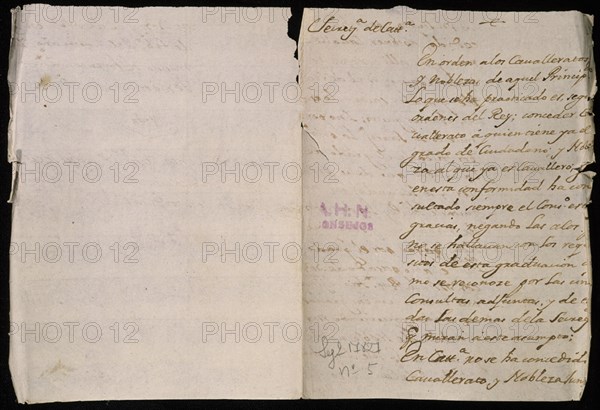 Secrey.ª de Catt.ª
En orden a los Cavalleratos
y Nobleza, de aquel Princip.
Lo que se ha practicado es, segu
ordenes del Rey; conceder Ca
vallerato á quien tiene ya el
grado de Ciudadano; y Noble
za al que ya es Cavallero; y
en esta conformidad ha con
sultado siempre el Cons.º es
gracias, negando las a los
no se hallavan con los requi
sitos de esta graduacion
mo se reconoze por las
Consultas, adjuntas, y de to
dos las demas de la Secrey
q miran a este asumpto;
En Catt.ª no se ha concedido
Cavallerato, y Nobleza
nº 5
PHOTO 12